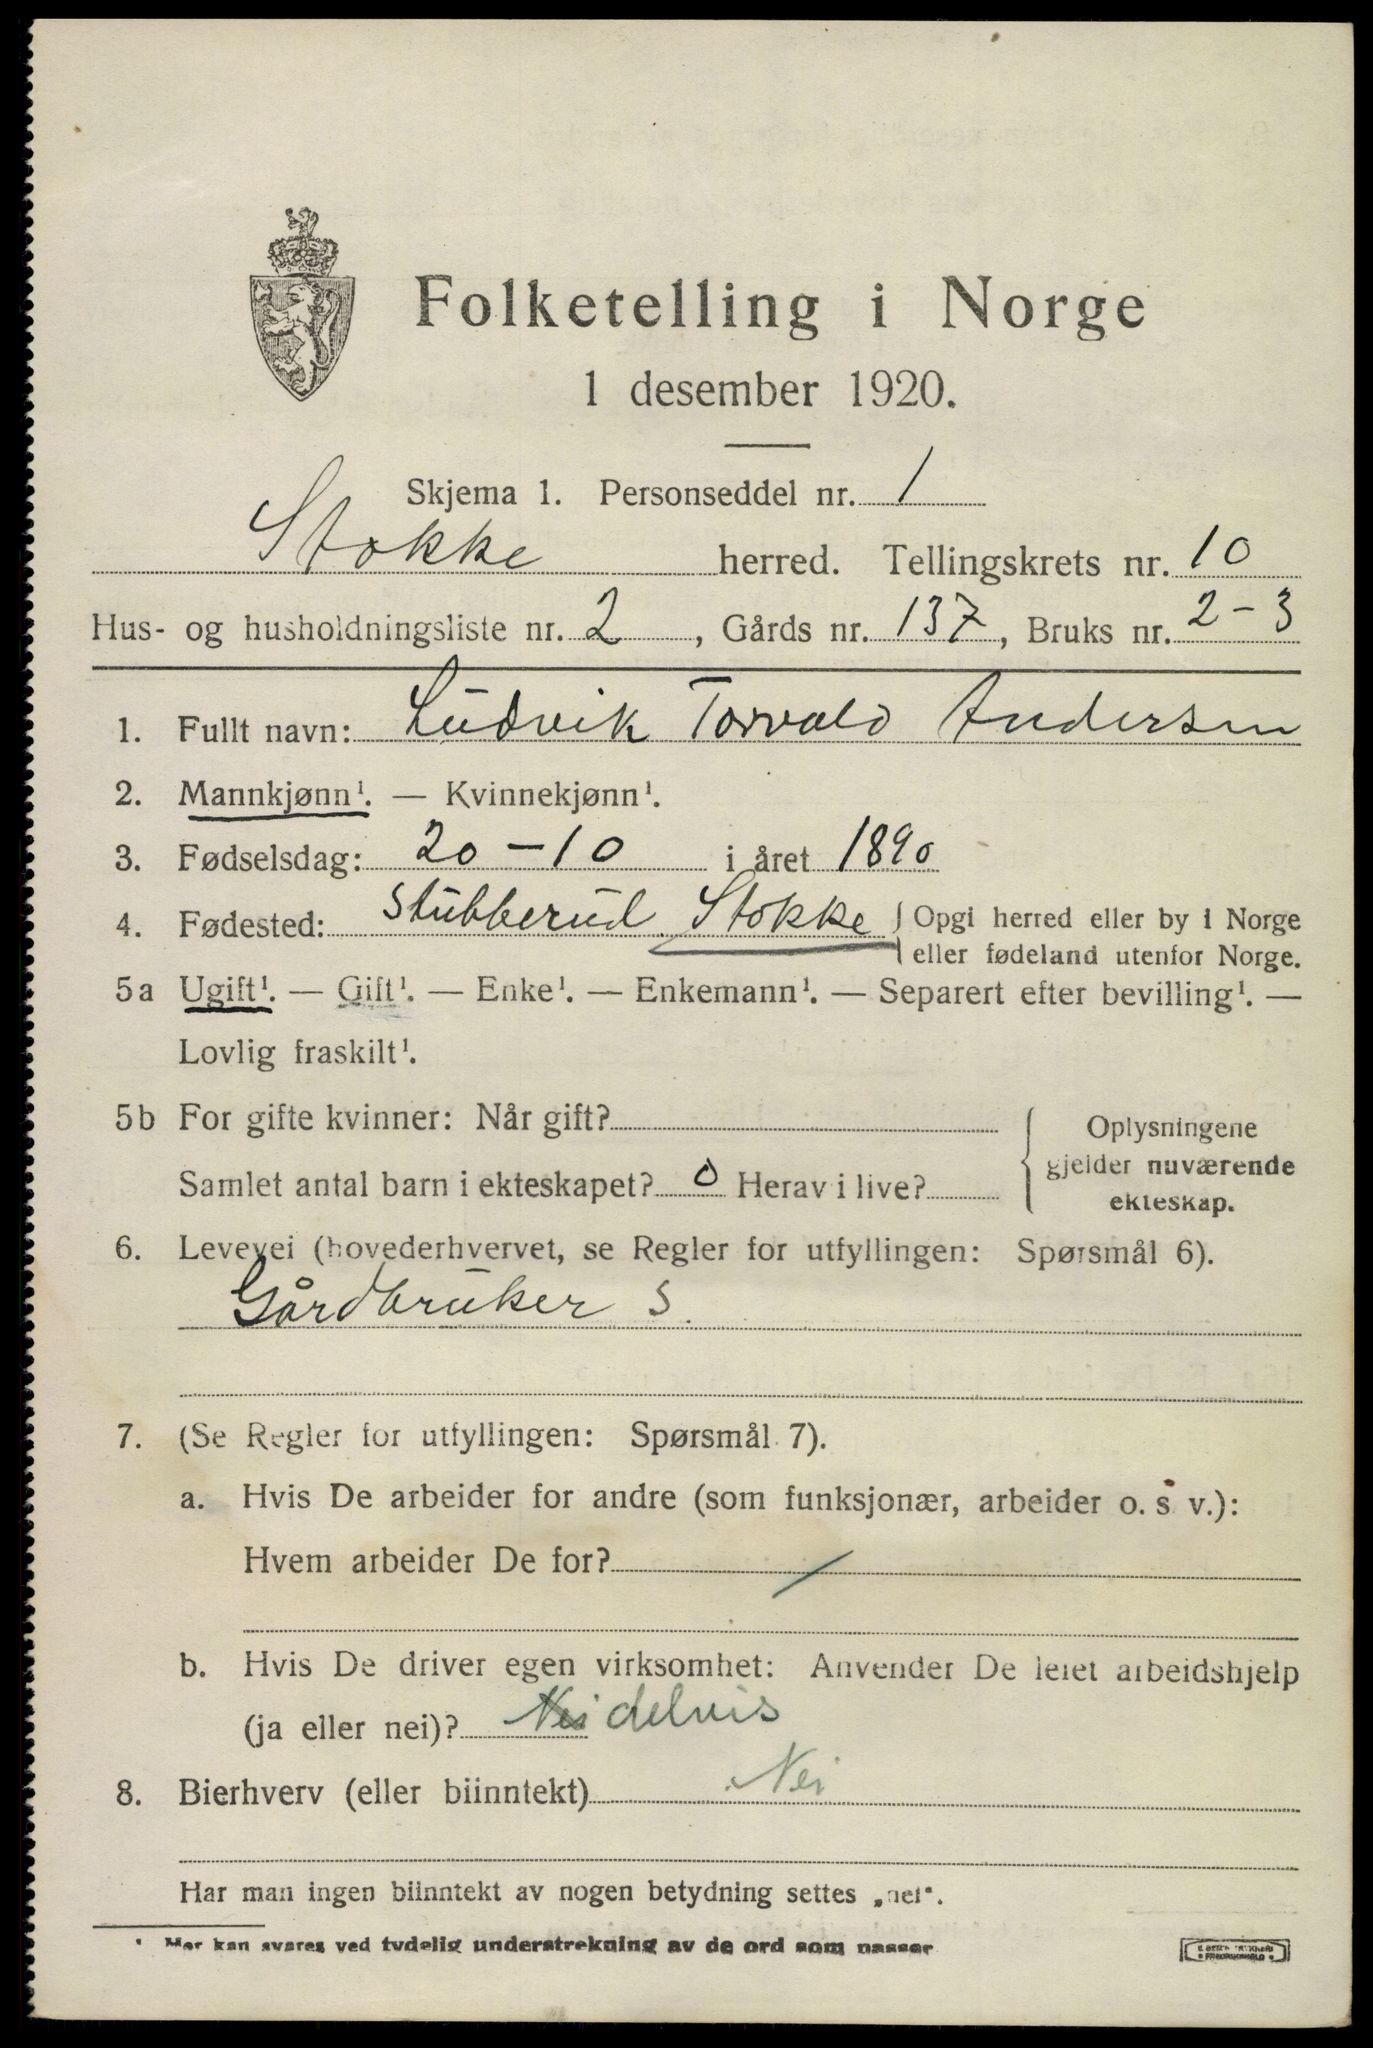 Folketelling i Norge
1 desember 1920.
Skjema 1. Personseddel nr. 1
Stokke herred. Tellingskrets nr. 10
Hus- og husholdningsliste nr. 2, Gårds nr. 137, Bruks nr. 2-3
1. Fullt navn: Ludvik Torvald Andersen
2. Mannkjønn¹. — Kvinnekjønn¹.
3. Fødselsdag: 20-10 i året 1890
4. Fødested: Stubberud Stokke { Opgi herred eller by i Norge
eller fødeland utenfor Norge.
5a Ugift¹. — Gift¹. — Enke¹. — Enkemann¹. — Separert efter bevilling¹. —
Lovlig fraskilt¹.
5b For gifte kvinner: Når gift?
Samlet antal barn i ekteskapet? 0 Herav i live?
Oplysningene
gjelder nuværende
ekteskap.
6. Levevei (hovederhvervet, se Regler for utfyllingen: Spørsmål 6).
Gårdbruker S
7. (Se Regler for utfyllingen: Spørsmål 7).
a. Hvis De arbeider for andre (som funksjonær, arbeider o. s. v.):
Hvem arbeider De for? /
b. Hvis De driver egen virksomhet: Anvender De leiet arbeidshjelp
(ja eller nei)? Nei delvis
8. Bierhverv (eller biinntekt) Nei
Har man ingen biinntekt av nogen betydning settes „nei“.
¹ Mer kan svares ved tydelig understrekning av de ord som passer